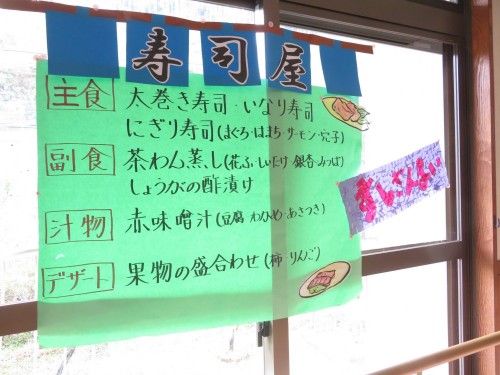 寿司屋
主食 太巻き寿司・いなり寿司
にぎり寿司(まぐろ・はまち・サーモン・穴子)
副食 茶わん蒸し(花ふ・しいたけ・銀杏・みつば)
しょうがの酢漬け
汁物 赤味噌汁(豆腐 わかめ・あさつき)
デザート 果物の盛合わせ(柿 りんご)